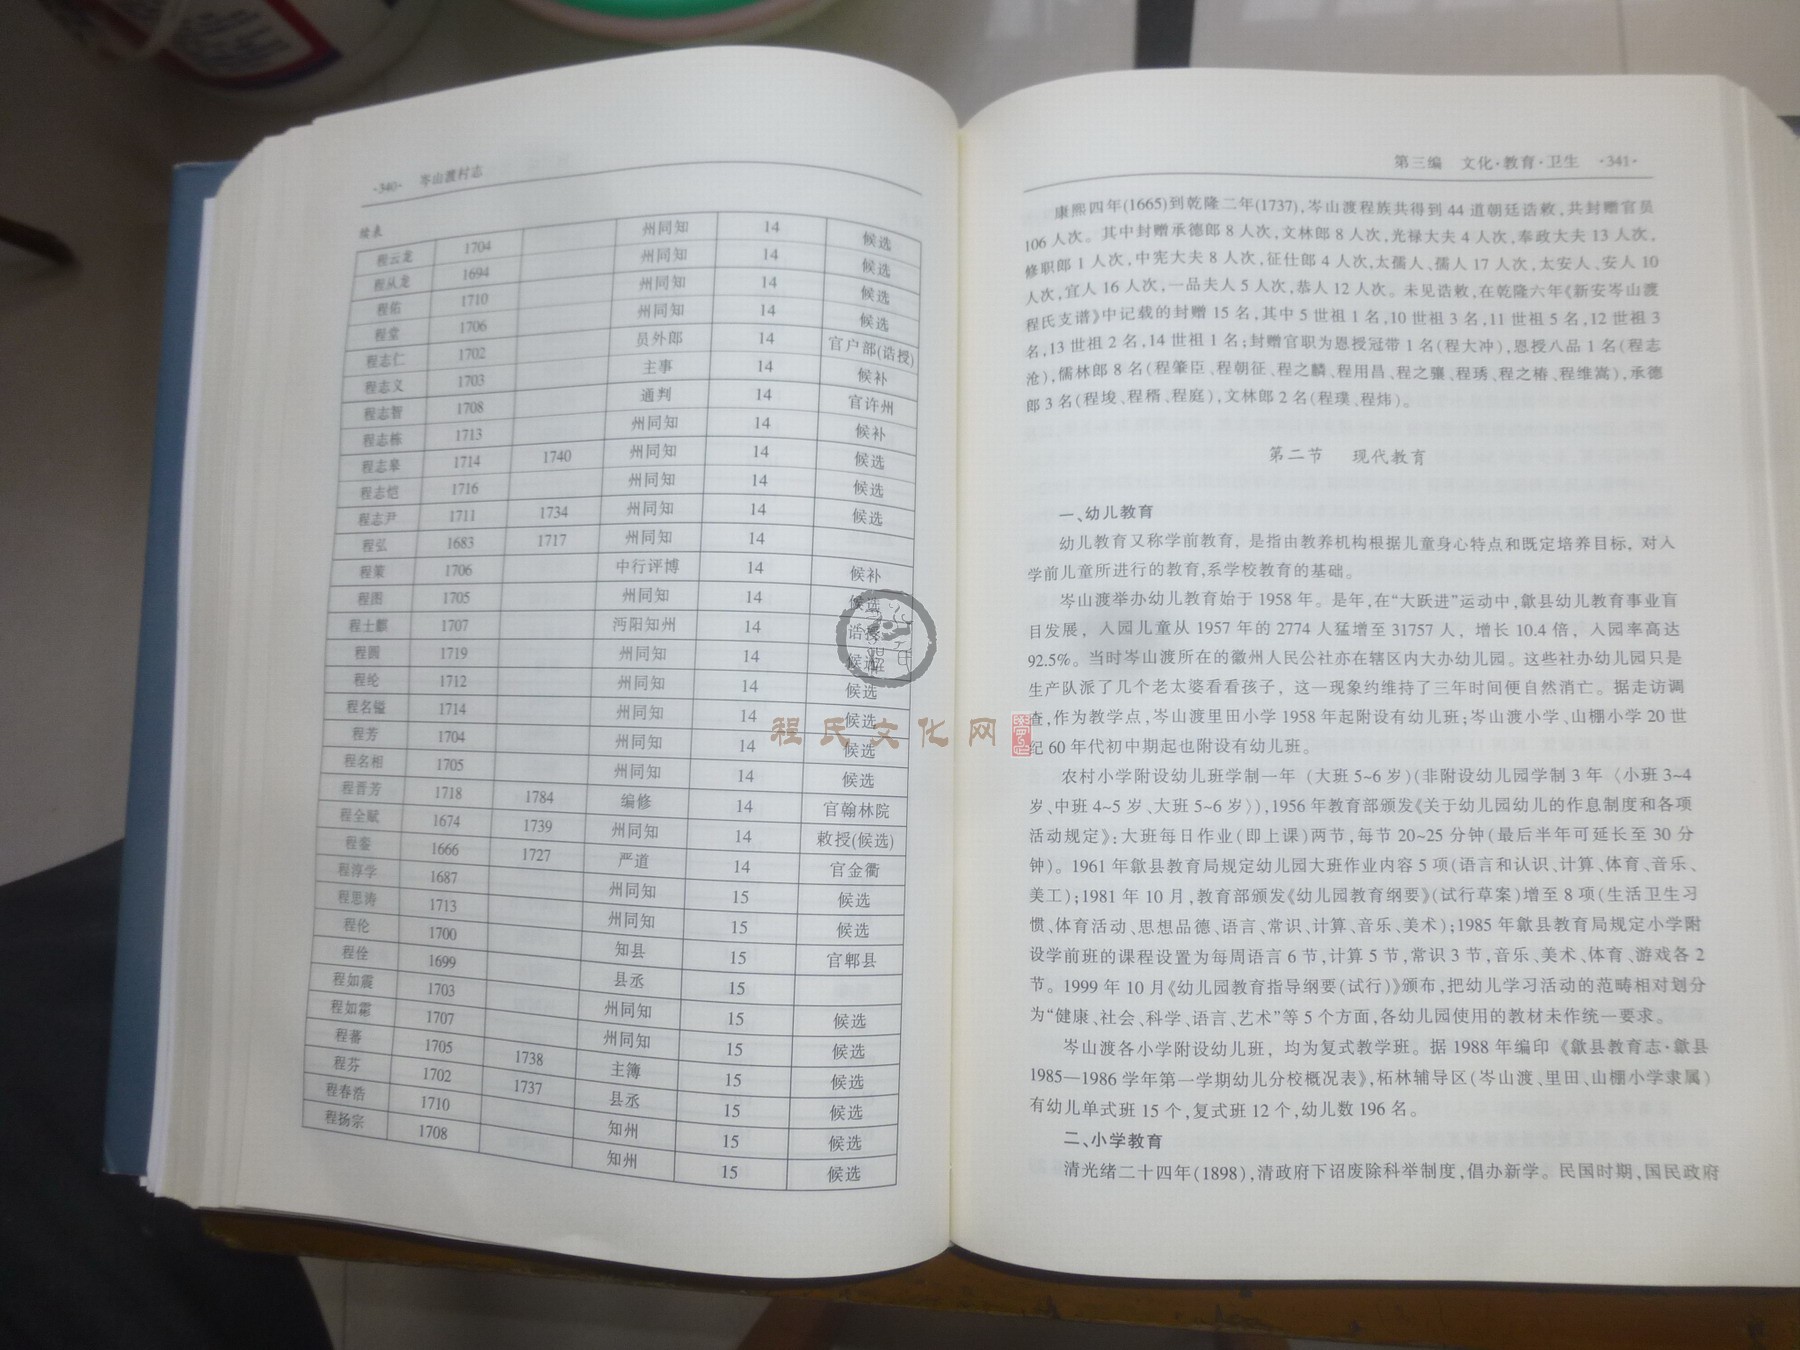 ·340· 岑山渡村志
续表
程云龙 1704 州同知 14 候选
程从龙 1694 州同知 14 候选
程佑 1710 州同知 14 候选
程堂 1706 州同知 14 候选
程志仁 1702 员外郎 14 官户部(诰授)
程志义 1703 主事 14 候补
程志智 1708 通判 14 官许州
程志栋 1713 州同知 14 候补
程志皋 1714 1740 州同知 14 候选
程志恺 1716 州同知 14 候选
程志尹 1711 1734 州同知 14 候选
程弘 1683 1717 州同知 14
程策 1706 中行评博 14 候补
程图 1705 州同知 14 候选
程士麒 1707 沔阳知州 14 诰授
程圆 1719 州同知 14 候选
程纶 1712 州同知 14 候选
程名镒 1714 州同知 14 候选
程芳 1704 州同知 14 候选
程名相 1705 州同知 14 候选
程晋芳 1718 1784 编修 14 官翰林院
程全赋 1674 1739 州同知 14 敕授(候选)
程銮 1666 1727 严道 14 官金衢
程淳学 1687 州同知 15 候选
程思涛 1713 州同知 15 候选
程伦 1700 知县 15 官郫县
程佺 1699 县丞 15
程如震 1703 州同知 15 候选
程如 1707 州同知 15 候选
程蕃 1705 1738 主簿 15 候选
程芬 1702 1737 县丞 15 候选
程春浩 1710 知州 15 候选
程扬宗 1708 知州 15 候选
程氏文化网
第三编 文化·教育·卫生 ·341·
康熙四年(1665)到乾隆二年(1737),岑山渡程族共得到 44 道朝廷诰敕,共封赠官员
106 人次。其中封赠承德郎 8 人次,文林郎 8 人次,光禄大夫 4 人次,奉政大夫 13 人次,
修职郎 1 人次,中宪大夫 8 人次,征仕郎 4 人次,太孺人、孺人 17 人次,太安人、安人 10
人次,宜人 16 人次,一品夫人 5 人次,恭人 12 人次。未见诰敕,在乾隆六年《新安岑山渡
程氏支谱》中记载的封赠 15 名,其中 5 世祖 1 名,10 世祖 3 名,11 世祖 5 名,12 世祖 3
名,13 世祖 2 名,14 世祖 1 名;封赠官职为恩授冠带 1 名(程大冲),恩授八品 1 名(程志
沧),儒林郎 8 名(程肇臣、程朝征、程之麟、程用昌、程之骧、程琇、程之椿、程维嵩),承德
郎 3 名(程埈、程稰、程庭),文林郎 2 名(程璞、程炜)。
第二节 现代教育
一、幼儿教育
幼儿教育又称学前教育，是指由教养机构根据儿童身心特点和既定培养目标，对入
学前儿童所进行的教育,系学校教育的基础。
岑山渡举办幼儿教育始于 1958 年。是年,在“大跃进”运动中,歙县幼儿教育事业盲
目发展，入园儿童从 1957 年的 2774 人猛增至 31757 人，增长 10.4 倍，入园率高达
92.5%。当时岑山渡所在的徽州人民公社亦在辖区内大办幼儿园。这些社办幼儿园只是
生产队派了几个老太婆看看孩子，这一现象约维持了三年时间便自然消亡。据走访调
查,作为教学点,岑山渡里田小学 1958 年起附设有幼儿班;岑山渡小学、山棚小学 20 世
纪 60 年代初中期起也附设有幼儿班。
农村小学附设幼儿班学制一年 (大班 5~6 岁)(非附设幼儿园学制 3 年〈小班 3~4
岁、中班 4~5 岁、大班 5~6 岁〉),1956 年教育部颁发《关于幼儿园幼儿的作息制度和各项
活动规定》:大班每日作业(即上课)两节,每节 20~25 分钟(最后半年可延长至 30 分
钟)。1961 年歙县教育局规定幼儿园大班作业内容 5 项(语言和认识、计算、体育、音乐、
美工);1981 年 10 月,教育部颁发《幼儿园教育纲要》(试行草案)增至 8 项(生活卫生习
惯、体育活动、思想品德、语言、常识、计算、音乐、美术);1985 年歙县教育局规定小学附
设学前班的课程设置为每周语言 6 节,计算 5 节,常识 3 节,音乐、美术、体育、游戏各 2
节。1999 年 10 月《幼儿园教育指导纲要(试行)》颁布,把幼儿学习活动的范畴相对划分
为“健康、社会、科学、语言、艺术”等 5 个方面,各幼儿园使用的教材未作统一要求。
岑山渡各小学附设幼儿班，均为复式教学班。据 1988 年编印《歙县教育志·歙县
1985—1986 学年第一学期幼儿分校概况表》,柘林辅导区(岑山渡、里田、山棚小学隶属)
有幼儿单式班 15 个,复式班 12 个,幼儿数 196 名。
二、小学教育
清光绪二十四年(1898),清政府下诏废除科举制度,倡办新学。民国时期,国民政府